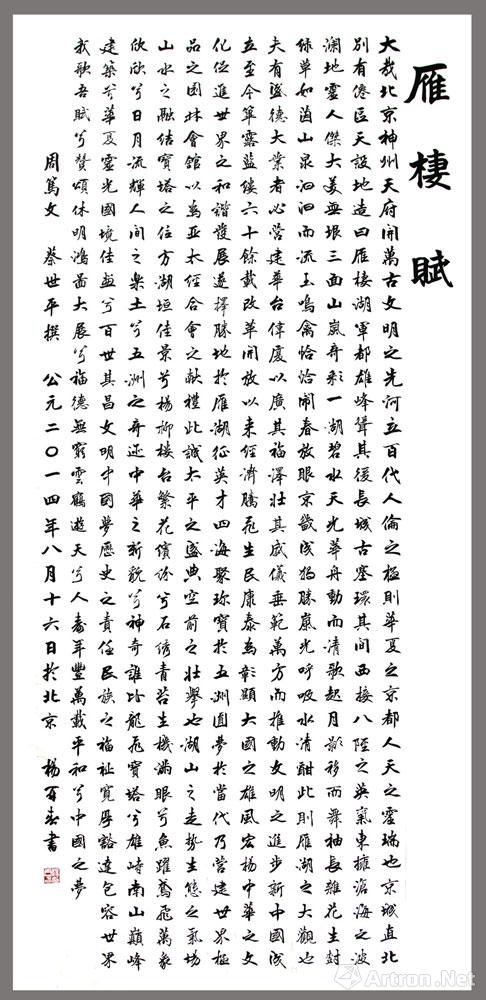 雁棲賦
大哉北京神州天府開萬古文明之先河立百代人倫之極則華夏之京都人天之靈瑞也京城直北
別有僊區天設地造曰雁棲湖軍都雄峰聳其後長城古塞環其間西接八陘之英氣東擁滄海之波
瀾地靈人傑大美無垠三面山嵐奇彩一湖碧水天光華舟動而清歌起月影移而舞袖長雜花生封
綠草如茵山泉汩汩而流玉鳴禽恰恰鬧春放眼京畿成獨勝嵐光呼吸水清酣此則雁湖之大觀也
夫有盛德大業者必營建華台偉廈以廣其福澤壯其威儀垂範萬方而推動文明之進步新中國成
立至今篳露藍縷六十餘載改革開放以來經濟騰飛生民康泰為彰顯大國之雄風宏楊中華之文
化促進世界之和諧發展遂擇勝地於雁湖征英才四海聚珎寶於五洲圓夢於當代乃營建世界極
品之園林會館以為亞太經合會之獻禮此誠太平之盛典空前之壯舉也湖山之走勢生態之氣場
山水之融結寶塔之住方湖垣佳景兮楊柳樓台繁花繽紛兮石綉青苔生機滿眼兮魚躍鳶飛萬象
欣欣兮日月流輝人間之樂土兮五洲之奇迹中華之新貌兮神奇誰比龍飛寶塔兮雄峙南山巔峰
建築兮華夏靈光國境佳盛兮百世其昌文明中國夢歷史之責任民族之福祉寬厚豁達包容世界
我歌吾賦兮贊頌休明鴻啚大展兮福德無窮雲鶴遊天兮人壽年豐萬載平和兮中國之夢
周篤文 蔡世平撰 公元二〇一四年八月十六日於北京 楊百春書
Artron.Net